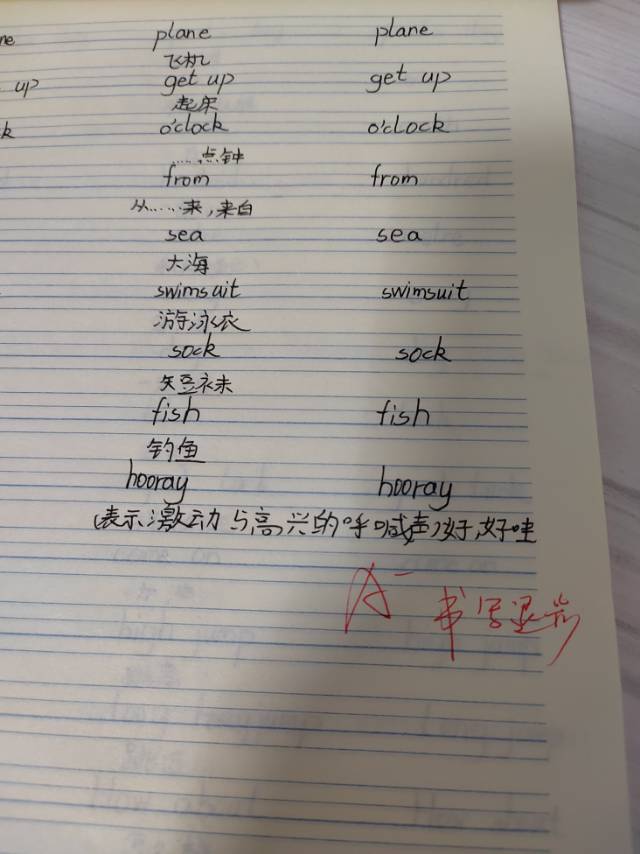 ne plane plane
飞机
up get up get up
起床
k o'clock o'clock
......点钟
from from
从......来,来自
sea sea
大海
swimsuit swimsuit
游泳衣
sock sock
短袜
fish fish
钓鱼
hooray hooray
(表示激动与高兴的呼喊声)好,好哇
A- 书写退步